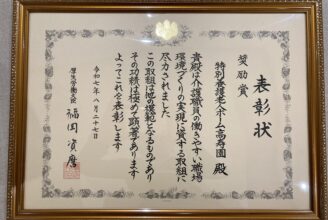 表彰状
奨励賞
特別養護老人ホーム高寿園 殿
貴殿は介護職員の働きやすい職場
環境づくりの実現に資する取組に
尽力されました
この取組は他の模範となるものであり
その功績は極めて顕著であります
よってこれを表彰します
令和七年八月二十七日
厚生労働大臣 福岡資麿